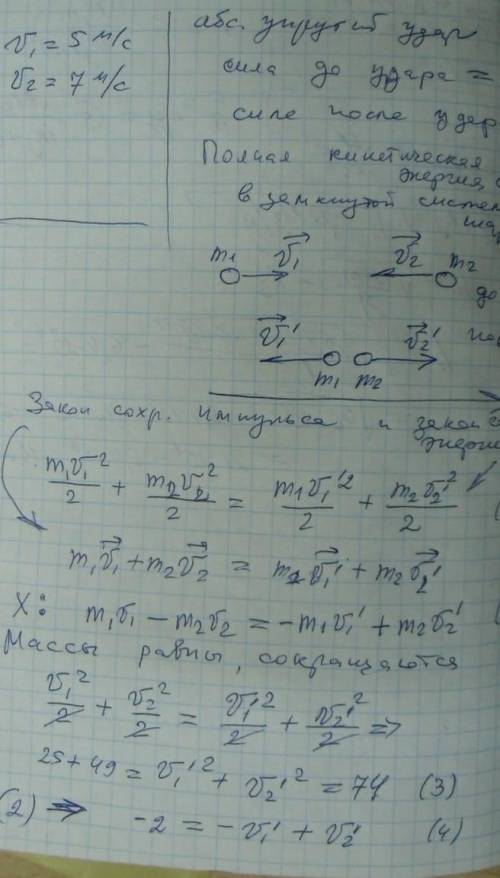 v₁ = 5 м/с
v₂ = 7 м/с
абс. упругий удар
сила до удара =
силе после удар
Полная кинетическая
энергия
в замкнутой систем
m₁ v⃗₁ v⃗₂ m₂
до
v⃗₁' v⃗₂'
m₁ m₂
Закон сохр. импульса и закон с
энерги
m₁v₁²/2 + m₂v₂²/2 = m₁v₁'²/2 + m₂v₂'²/2
m₁v⃗₁ + m₂v⃗₂ = m₁v⃗₁' + m₂v⃗₂'
X: m₁v₁ − m₂v₂ = −m₁v₁' + m₂v₂'
Массы равны, сокращаются
v₁²/2 + v₂²/2 = v₁'²/2 + v₂'²/2 =>
25 + 49 = v₁'² + v₂'² = 74 (3)
(2) => −2 = −v₁' + v₂' (4)